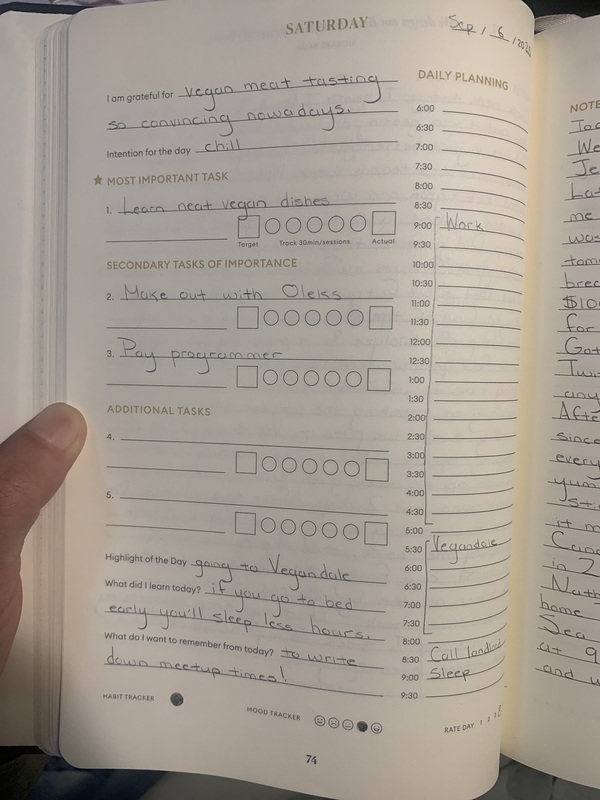 SATURDAY
Sep / 6 / 202
I am grateful for vegan meat tasting
so convincing nowadays.
Intention for the day chill
MOST IMPORTANT TASK
1. Learn neat vegan dishes
Target Track 30min/sessions Actual
SECONDARY TASKS OF IMPORTANCE
2. Make out with Oleiss
3. Pay programmer
ADDITIONAL TASKS
4.
5.
Highlight of the Day going to Vegandale
What did I learn today? if you go to bed
early you'll sleep less hours.
What do I want to remember from today? to write
down meetup times!
HABIT TRACKER
MOOD TRACKER
RATE DAY 1 2
74
DAILY PLANNING
6:00
6:30
7:00
7:30
8:00
8:30
9:00 Work
9:30
10:00
10:30
11:00
11:30
12:00
12:30
1:00
1:30
2:00
2:30
3:00
3:30
4:00
4:30
5:00
5:30 Vegandale
6:00
6:30
7:00
7:30
8:00
8:30 Call landlord
9:00 Sleep
9:30
NOTE
We
me
was
$10
for
Got
After
since
every
yum
it m
in 2
home
Sea
at 9
and w